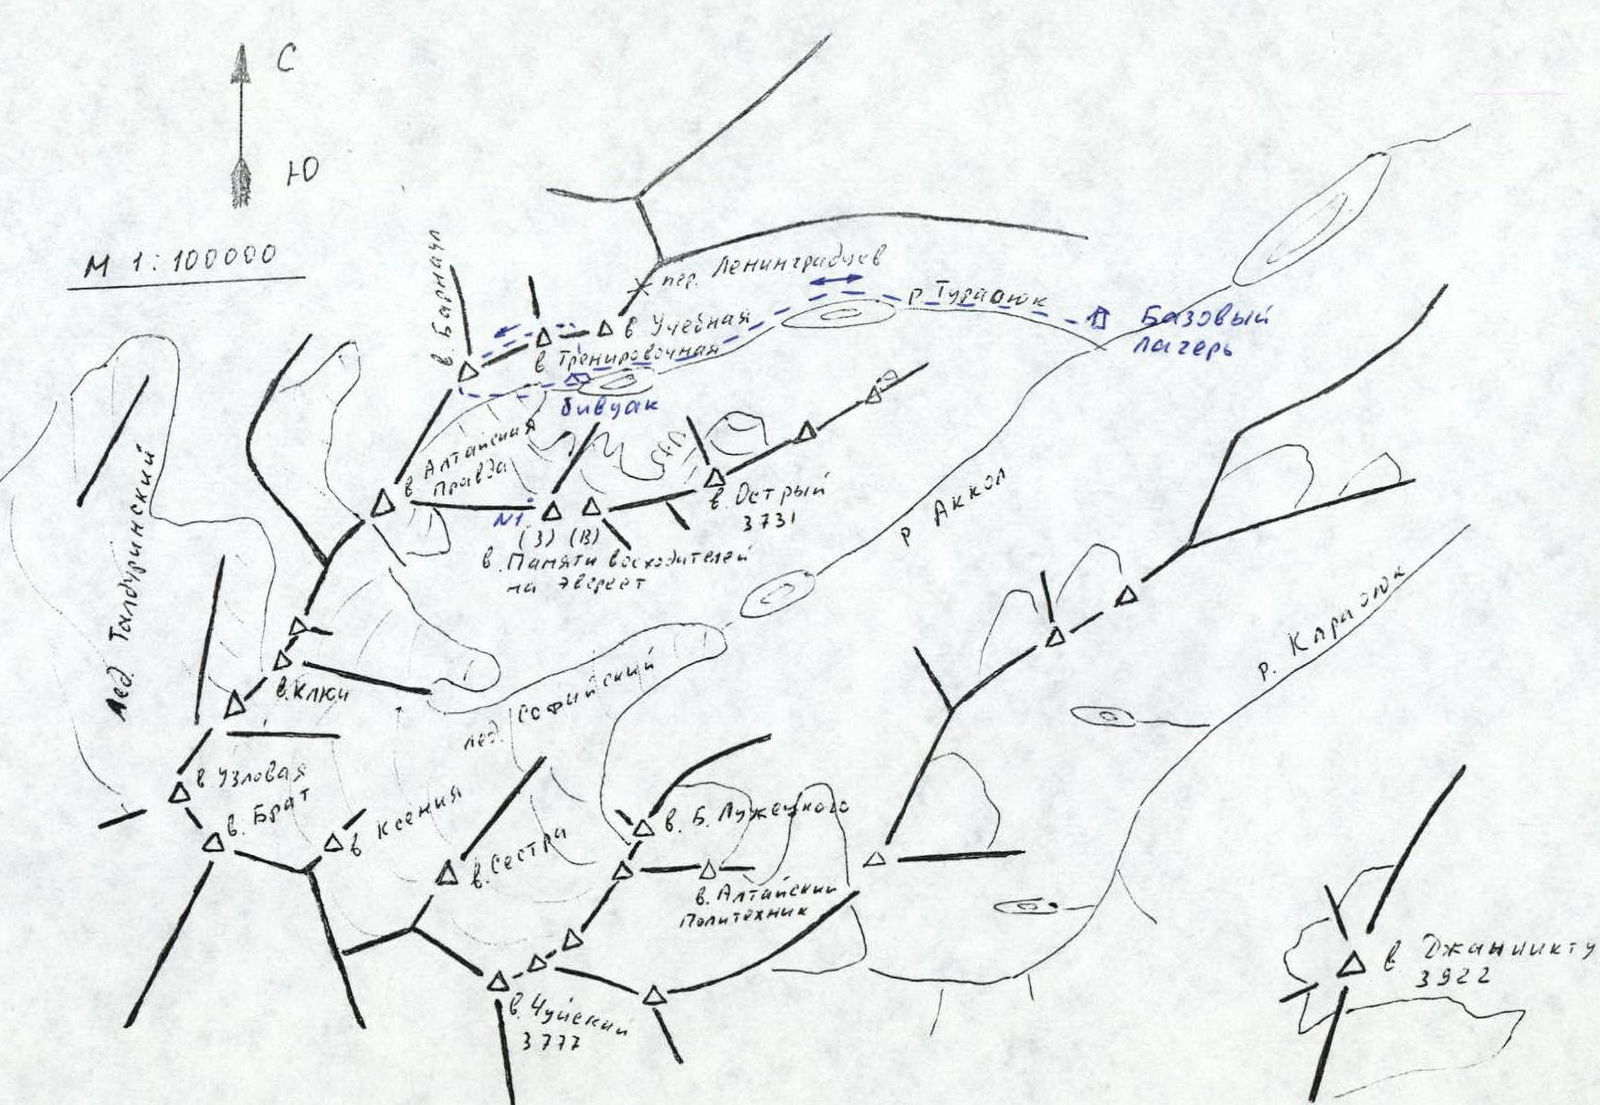 С
Ю
М 1:100000
в. Барнаул
пер. Ленинградцев
р. Тураоюк
Базовый
лагерь
в Учебная
в Тренировочная
бивуак
в Алтайская
Правда
N1
(З) (В)
в. Памяти восходителей
на Эверест
в. Острый
3731
р Аккол
р. Караоюк
Лед Талдуринский
в. Ключ
лед. Софийский
в Узловая
в. Брат
в Ксения
в. Сестра
в. Б. Лужецкого
в. Алтайский
Политехник
в. Чуйский
3777
в Джаниикту
3922